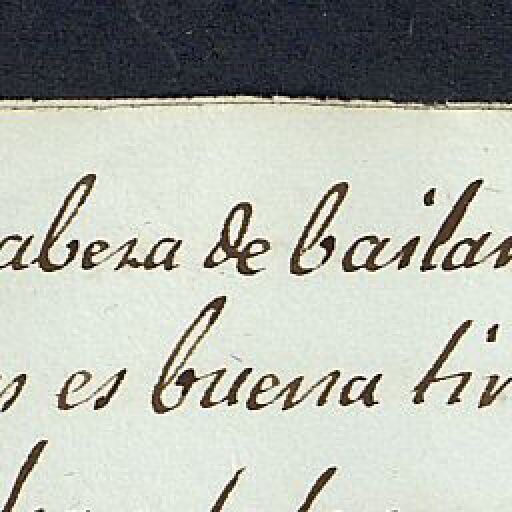 abeza de bailar
es es buena tin